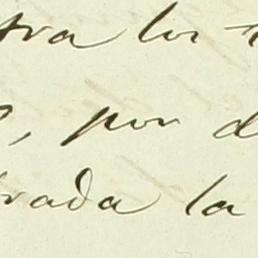 tra los
, por d
rada la